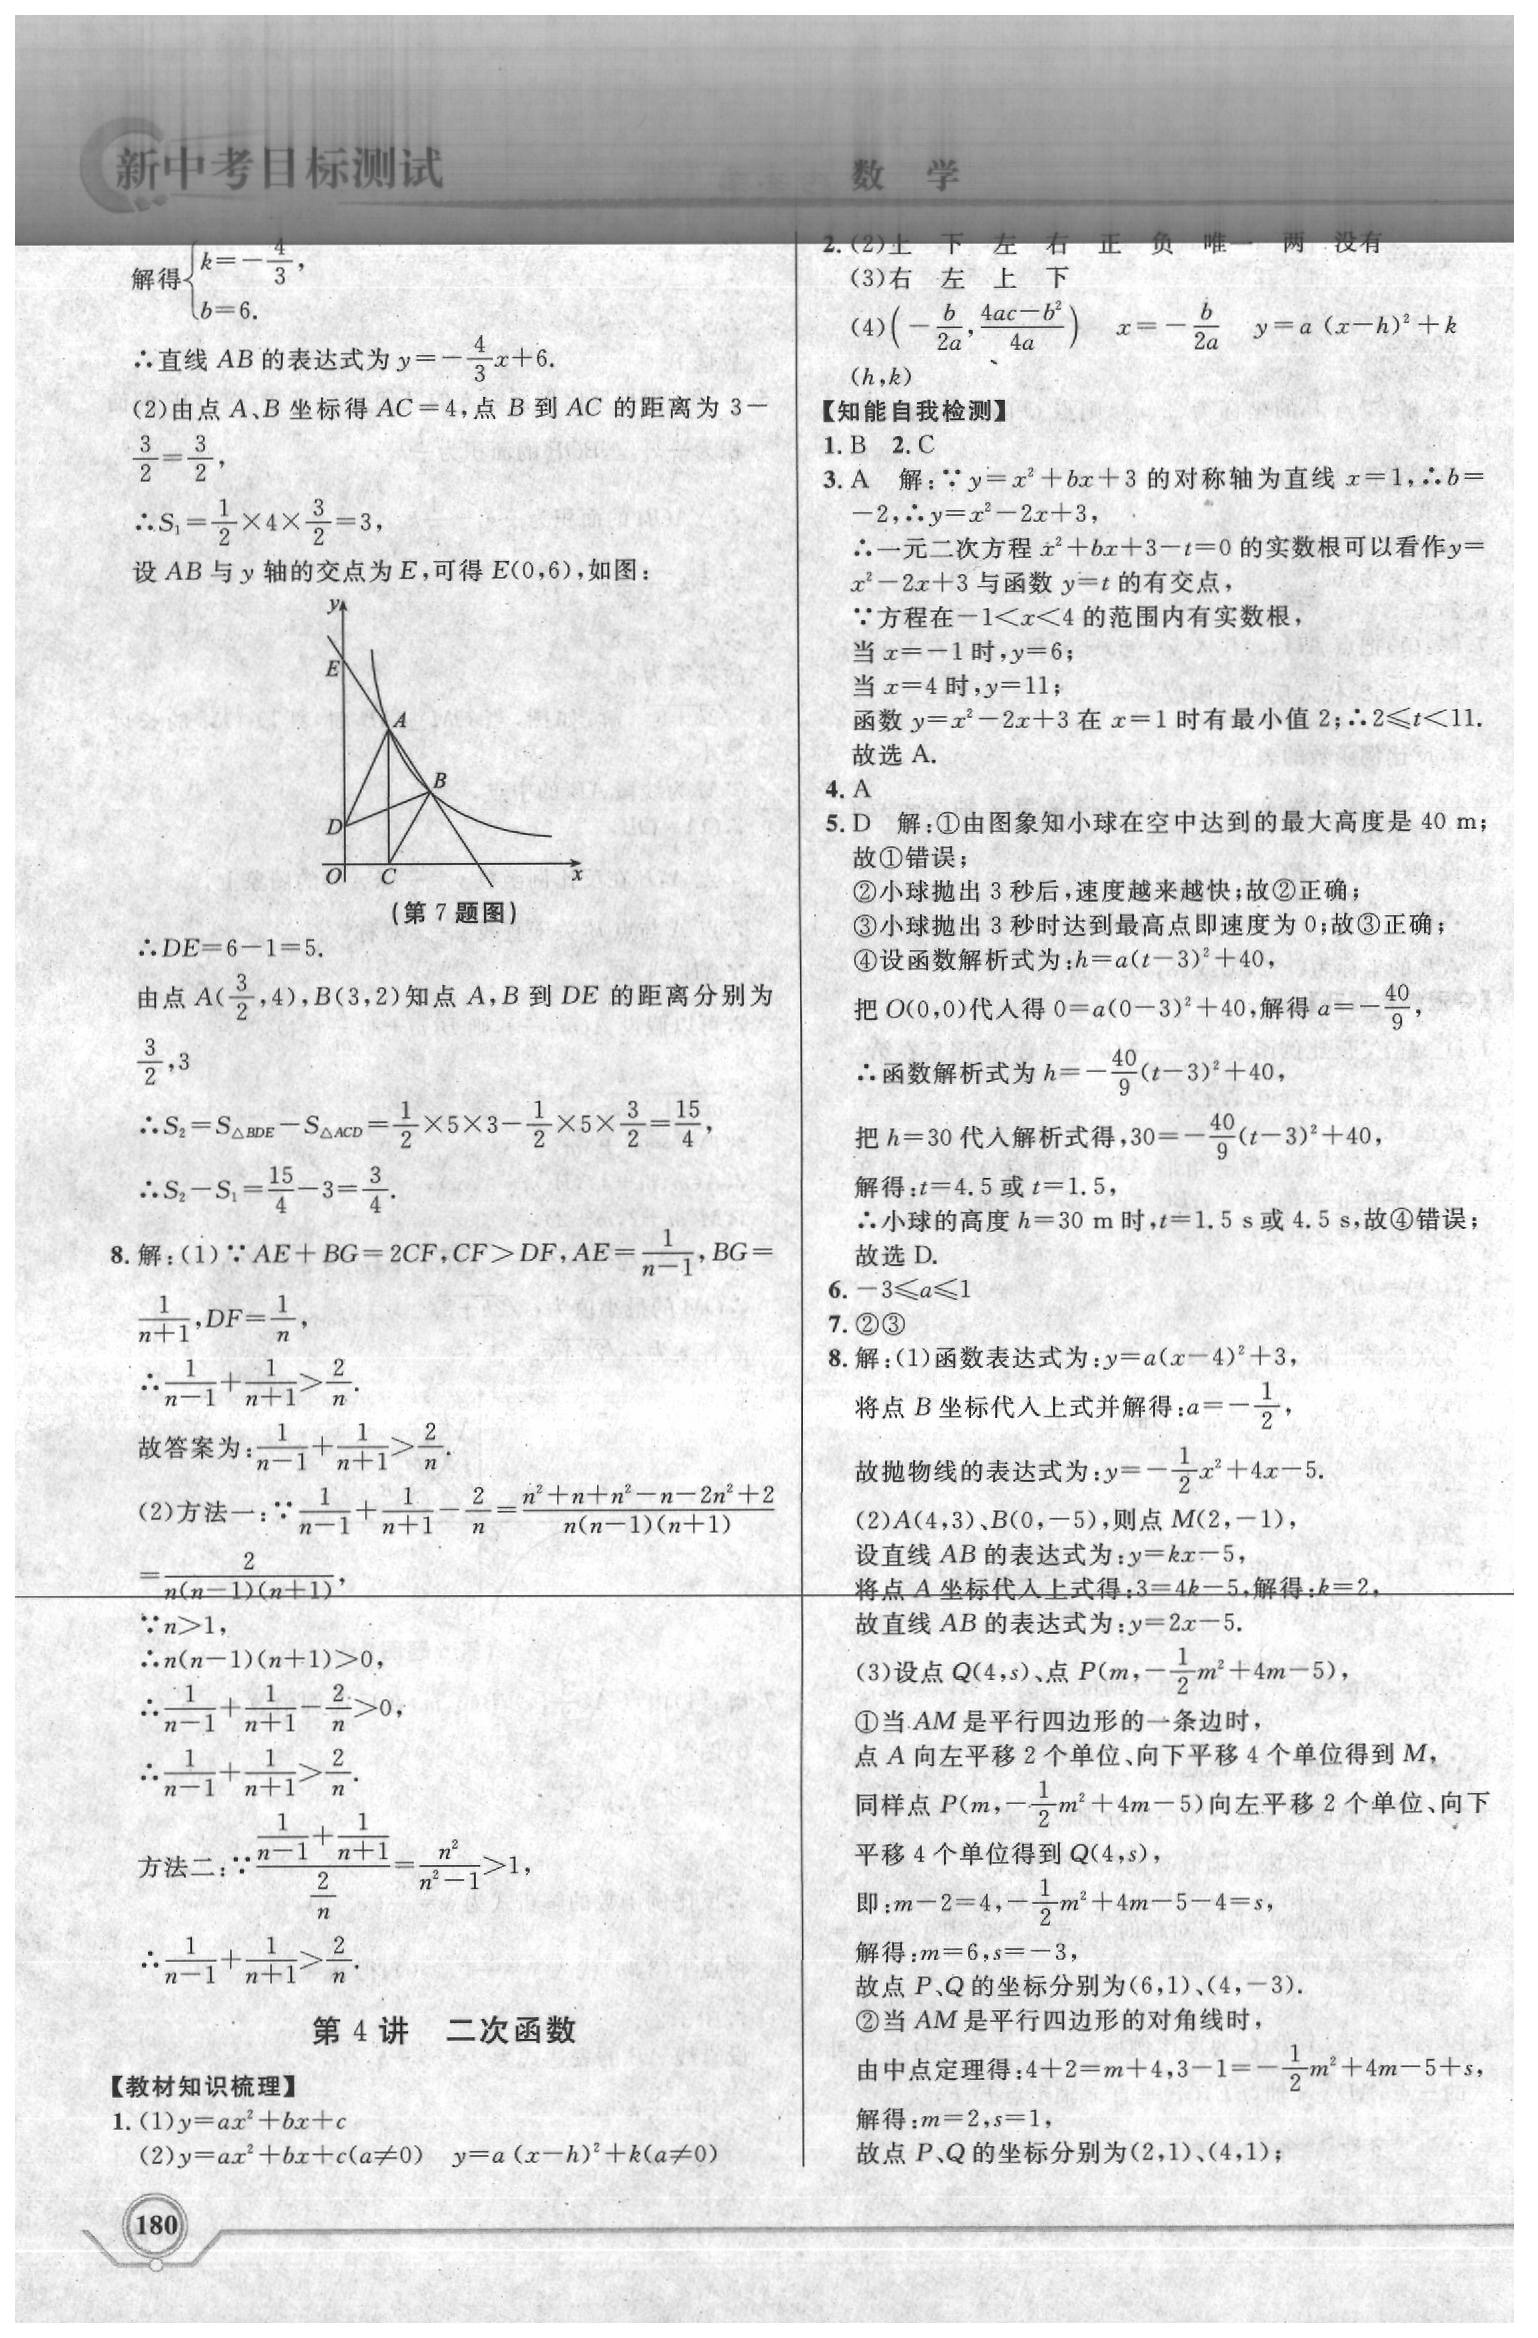 新中考目标测试
数 学
解得{k=-4/3,
b=6.
∴直线 AB 的表达式为 y=-4/3x+6.
(2)由点 A、B 坐标得 AC=4,点 B 到 AC 的距离为 3-
3/2=3/2,
∴S₁=1/2×4×3/2=3,
设 AB 与 y 轴的交点为 E,可得 E(0,6),如图:
y
E
A
B
D
O C x
(第 7 题图)
∴DE=6-1=5.
由点 A(3/2,4),B(3,2)知点 A,B 到 DE 的距离分别为
3/2,3
∴S₂=S△BDE-S△ACD=1/2×5×3-1/2×5×3/2=15/4,
∴S₂-S₁=15/4-3=3/4.
8.解:(1)∵AE+BG=2CF,CF>DF,AE=1/(n-1),BG=
1/(n+1),DF=1/n,
∴1/(n-1)+1/(n+1)>2/n.
故答案为:1/(n-1)+1/(n+1)>2/n.
(2)方法一:∵1/(n-1)+1/(n+1)-2/n=(n²+n+n²-n-2n²+2)/(n(n-1)(n+1))
=2/(n(n-1)(n+1)),
∵n>1,
∴n(n-1)(n+1)>0,
∴1/(n-1)+1/(n+1)-2/n>0,
∴1/(n-1)+1/(n+1)>2/n.
方法二:∵(1/(n-1)+1/(n+1))/(2/n)=n²/(n²-1)>1,
∴1/(n-1)+1/(n+1)>2/n.
第 4 讲 二次函数
【教材知识梳理】
1.(1)y=ax²+bx+c
(2)y=ax²+bx+c(a≠0) y=a(x-h)²+k(a≠0)
2.(2)上 下 左 右 正 负 唯一 两 没有
(3)右 左 上 下
(4)(-b/2a,(4ac-b²)/4a) x=-b/2a y=a(x-h)²+k
(h,k)
【知能自我检测】
1.B 2.C
3.A 解:∵y=x²+bx+3 的对称轴为直线 x=1,∴b=
-2,∴y=x²-2x+3,
∴一元二次方程 x²+bx+3-t=0 的实数根可以看作y=
x²-2x+3 与函数 y=t 的有交点,
∵方程在-1<x<4 的范围内有实数根,
当 x=-1 时,y=6;
当 x=4 时,y=11;
函数 y=x²-2x+3 在 x=1 时有最小值 2;∴2≤t<11.
故选 A.
4.A
5.D 解:①由图象知小球在空中达到的最大高度是 40 m;
故①错误;
②小球抛出 3 秒后,速度越来越快;故②正确;
③小球抛出 3 秒时达到最高点即速度为 0;故③正确;
④设函数解析式为:h=a(t-3)²+40,
把 O(0,0)代入得 0=a(0-3)²+40,解得 a=-40/9,
∴函数解析式为 h=-40/9(t-3)²+40,
把 h=30 代入解析式得,30=-40/9(t-3)²+40,
解得:t=4.5 或 t=1.5,
∴小球的高度 h=30 m 时,t=1.5 s 或 4.5 s,故④错误;
故选 D.
6.-3≤a≤1
7.②③
8.解:(1)函数表达式为:y=a(x-4)²+3,
将点 B 坐标代入上式并解得:a=-1/2,
故抛物线的表达式为:y=-1/2x²+4x-5.
(2)A(4,3)、B(0,-5),则点 M(2,-1),
设直线 AB 的表达式为:y=kx-5,
将点 A 坐标代入上式得:3=4k-5,解得:k=2,
故直线 AB 的表达式为:y=2x-5.
(3)设点 Q(4,s)、点 P(m,-1/2m²+4m-5),
①当 AM 是平行四边形的一条边时,
点 A 向左平移 2 个单位、向下平移 4 个单位得到 M,
同样点 P(m,-1/2m²+4m-5)向左平移 2 个单位、向下
平移 4 个单位得到 Q(4,s),
即:m-2=4,-1/2m²+4m-5-4=s,
解得:m=6,s=-3,
故点 P、Q 的坐标分别为(6,1)、(4,-3).
②当 AM 是平行四边形的对角线时,
由中点定理得:4+2=m+4,3-1=-1/2m²+4m-5+s,
解得:m=2,s=1,
故点 P、Q 的坐标分别为(2,1)、(4,1);
180